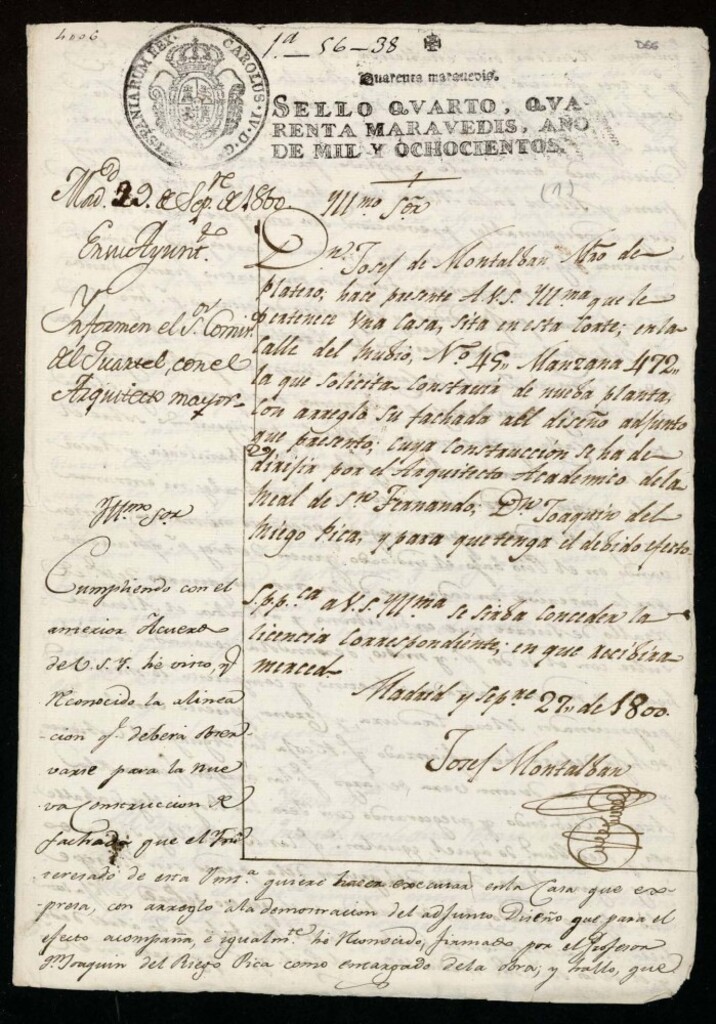 4006
1ª - 56 - 38
D66
HISPANIARUM REX CAROLUS·IV·D·G·
Quarenta maravedis.
SELLO QVARTO, QVA
RENTA MARAVEDIS, AÑO
DE MIL Y OCHOCIENTOS.
(1)
Mad.d 29. de Sep.re de 1800.
En su Ayunt.to
Informen el S.or Comis.
del Quartel, con el
Arquitecto mayor
Yllmo Sor
Dn. Josef de Montalban Mro de
platero, hace presente A.V.S. Yllma que le
pertenece vna Casa, sita en esta Corte, en la
Calle del rubio, No 45,, Manzana 472,,
la que solicita Construir de nueba planta,
con arreglo su fachada all diseño adjunto
que presento; cuya Construccion se ha de
dirijir por el Arquitecto Academico de la
Real de Sn Fernando, Dn Joaquin del
Riego Pica, y para que tenga el debido efecto.
S.pp.ca a V.S. Yllma se sirba conceder la
licencia Correspondiente, en que recibira
merced
Madrid y Sepre 27,, de 1800.
Josef Montalban
Yllmo Sor
Cumpliendo con el
anterior Acuerdo
de V.S.Y. he visto, y
Reconocido la alinea
cion q.e debera obser
varse para la nue
va Construccion de
fachada que el Ynte
teresado de esta Ynst.a quiere hacer executar en la Casa que ex-
presa, con arreglo a la demostracion del adjunto Diseño que para el
efecto acompaña, é igualm.te hé Reconocido, firmado por el Profesor
Dn Joaquin del Riego Pica como encargado de la obra; y hallo, que